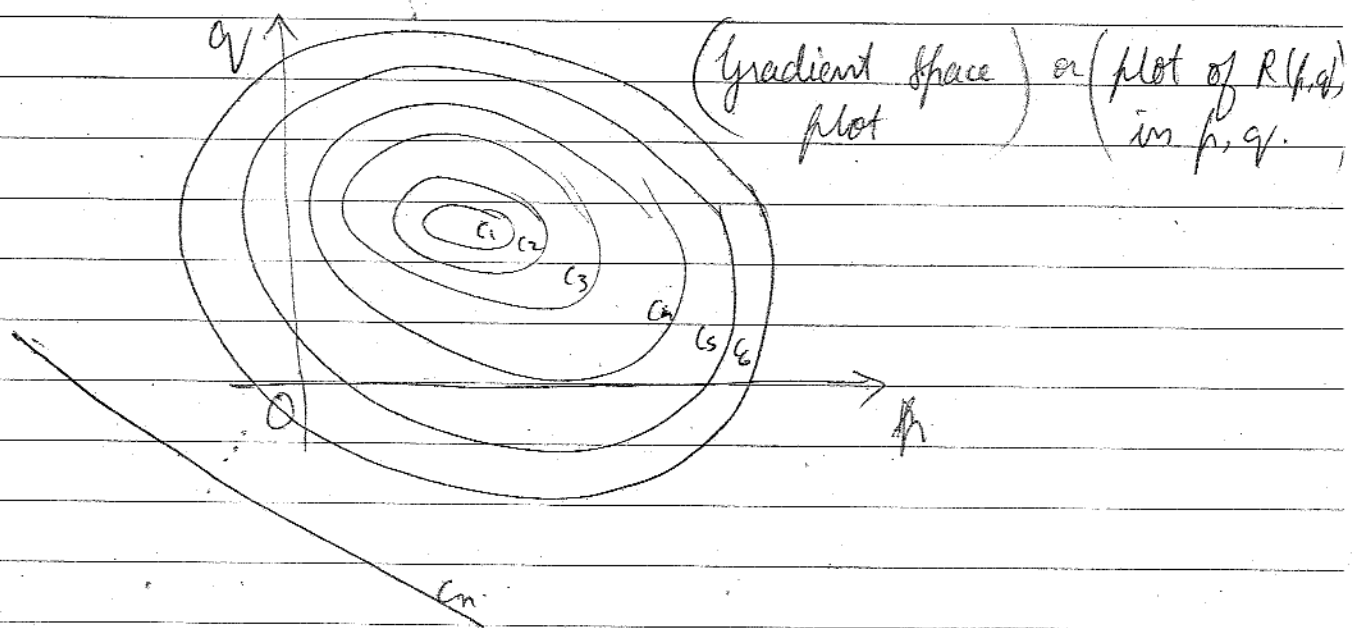 q
(Gradient Space plot) or (plot of R(p,q) in p, q.)
C1 C2
C3
C4
C5 C6
O
p
Cn.